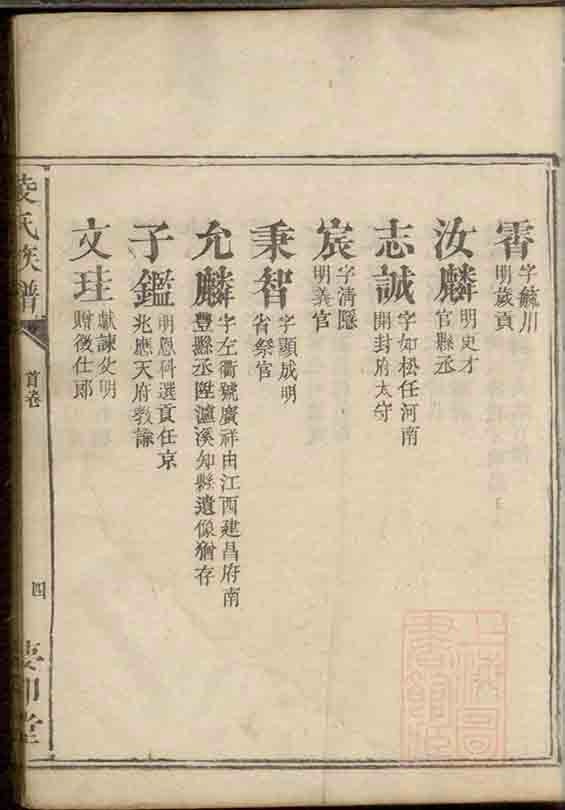 霄
字毓川
明歲貢
汝麟
明吏才
官縣丞
志誠
字如松任河南
開封府太守
宸
字清隱
明義官
秉智
字顯成明
省祭官
允麟
字左衢號廣祥由江西建昌府南
豐縣丞陞瀘溪知縣遺像猶存
子鑑
明恩科選貢任京
兆應天府教諭
文珪
獻諫父明
贈徵仕郎
氏族譜
首卷
四
堂
上海圖
書館藏